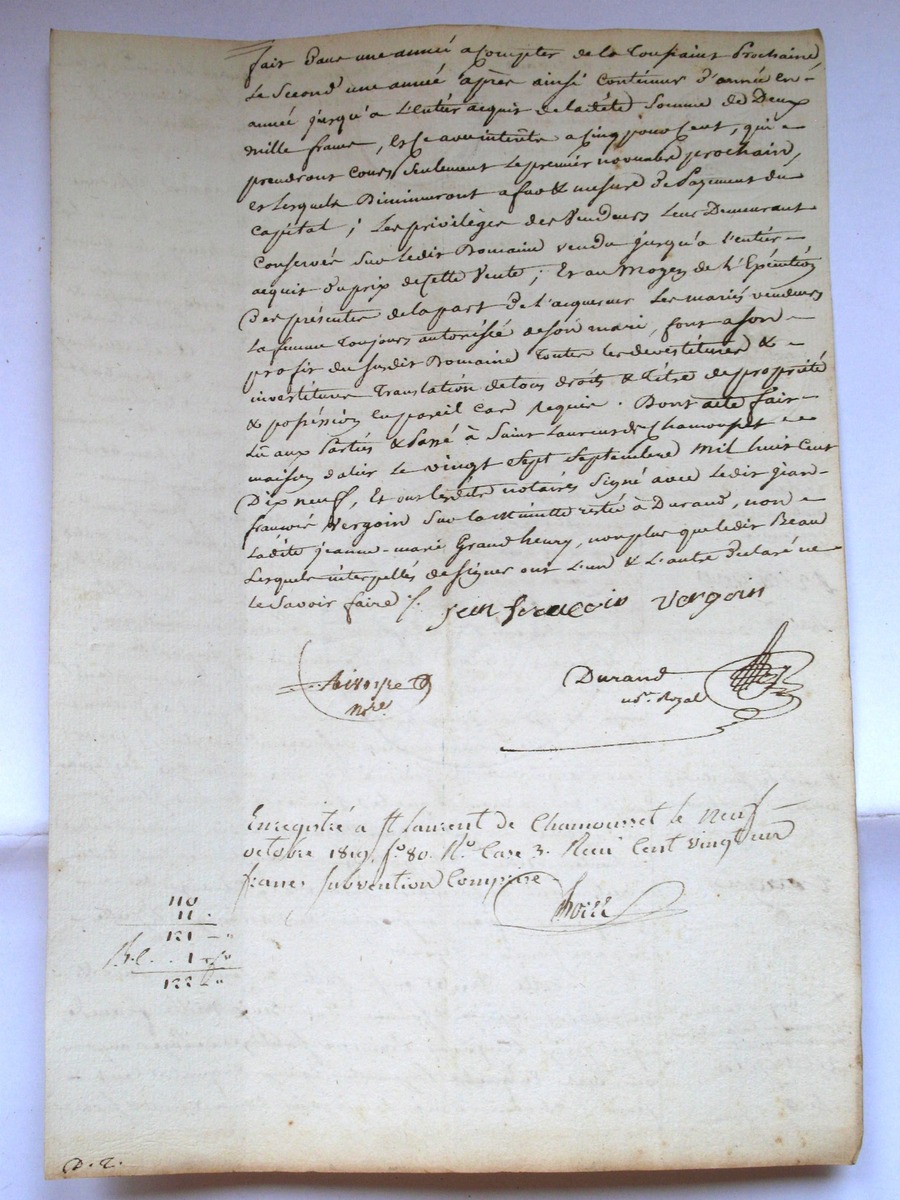 fait dans une année a compter de la Toussaint Prochaine
Le Second une année après ainsi continuer d'année en
année jusqu'a L'entier acquit de ladite Somme de Deux
mille francs, et ce avec intérêts a cinq pour Cent, qui
prendront cours Seulement le premier novembre prochain,
et Lesquels Diminueront a fur & mesure de Payement du
Capital ; Les privilèges des Vendeurs Leur Demeurant
Conservés Sur ledit Domaine vendu jusqu'a l'entier
acquit du prix de cette Vente ; Et au Moyen de l'Exécution
Des présentes de la part de l'acquereur Les mariés vendeurs
La femme Toujours autorisée de son mari, font a son
profit du susdit Domaine Toutes les dévestitures &
investiture Translation de tous droits & titre de propriété
& possession en pareil cas Requis. Dont acte fait
Lû aux Parties & Passé à Saint Laurent de Chamousset
maison dalin Le vingt Sept Septembre Mil huit Cent
Dix neuf, Et ont lesdits notaires Signé avec ledit jean
françois Vergoin Sur la Minutte restée à Durand, non
Ladite jeanne-marie Grandhenry, non plus que ledit Beau
Lesquels interpellés de Signer ont L'un & L'autre Déclaré ne
le Savoir faire /.
jean francois vergoin
Durand
nore. Nre. Royal
Enregistré a St Laurent de Chamousset le neuf
octobre 1819 fo. 80. Ro. Case 3. Recu Cent vingt un
francs subvention Comprise
110
11 .
121 - "
1
122
D. 2.